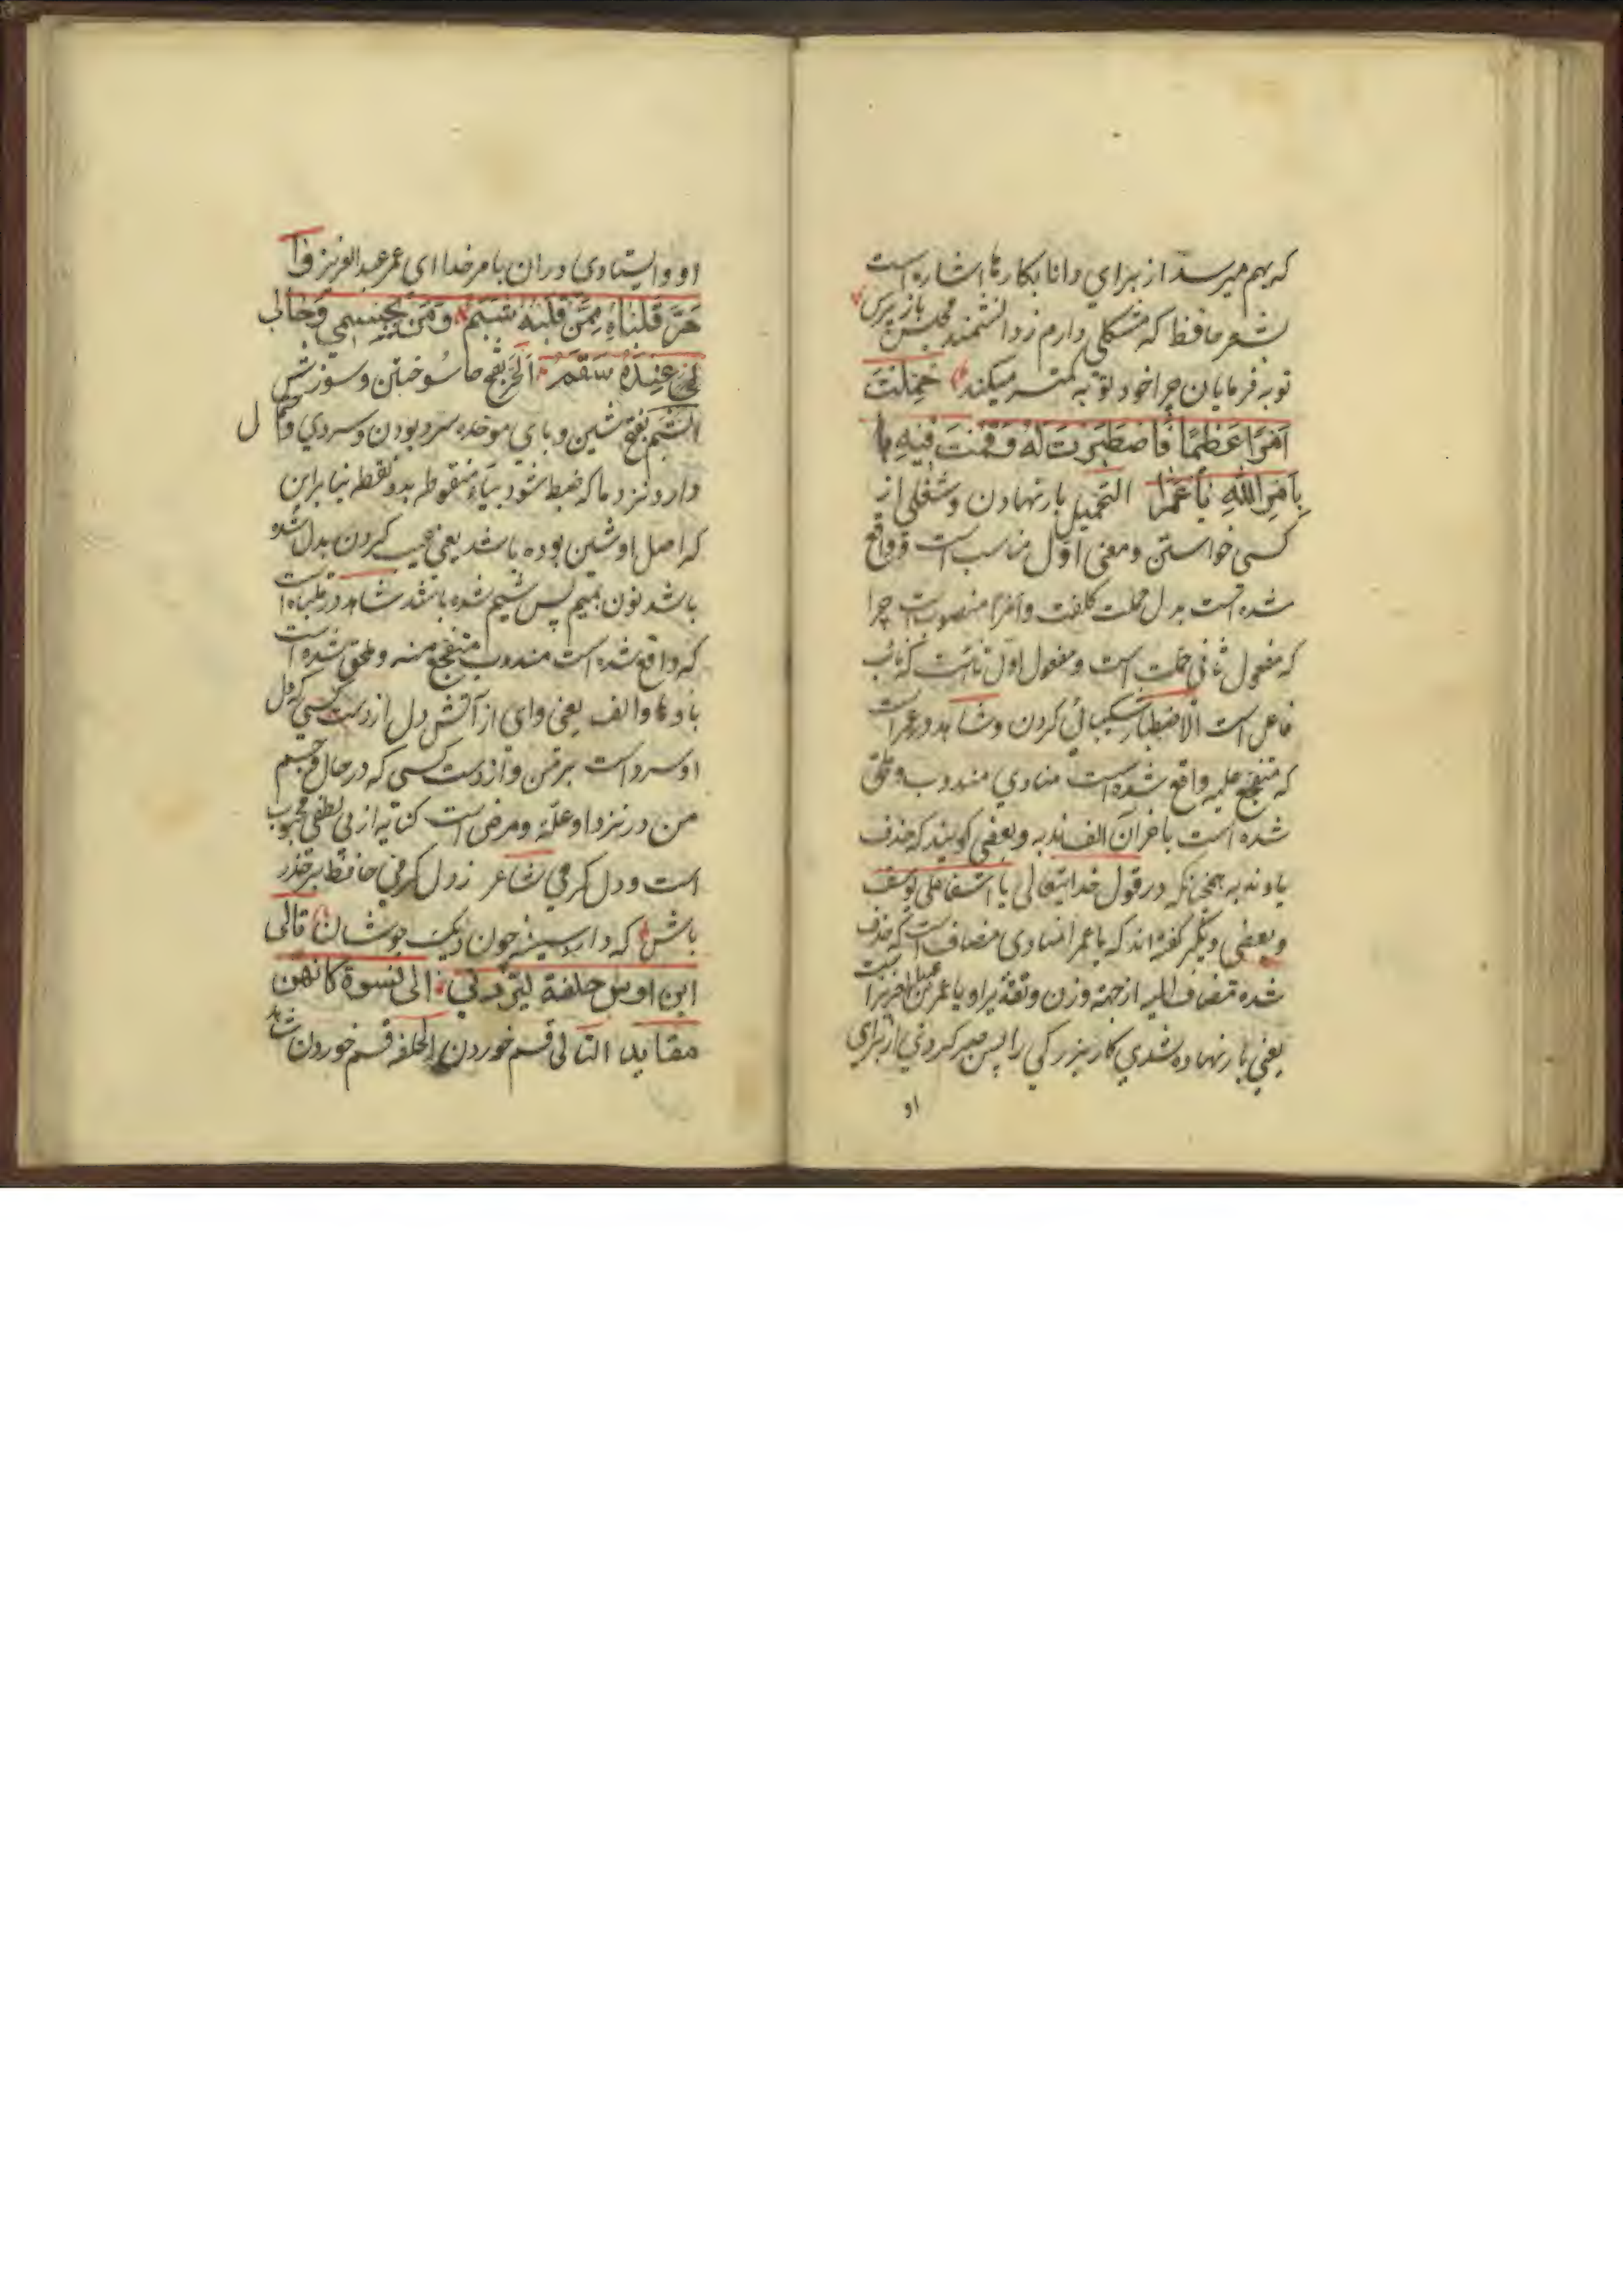 که بهم میرسد از برای دانا بکارها اشاره است
بشعر حافظ که مشکلی دارم ز دانشمند مجلس باز پرس
توبه فرمایان چرا خود توبه کمتر میکنند حُمِّلْتَ
اَمْرًا عَظِیْمًا فَاصْطَبَرْتَ لَهُ وَقُمْتَ فِیْهِ
بِاَمْرِ اللهِ یَا عُمَرَا التحمیل بار نهادن و شغلی از
کسی خواستن و معنی اوّل مناسب است و واقع
شده است بدل حملت کلفت و امرًا منصوبست چرا
که مفعول ثانی حملت است و مفعول اوّل تاست که نائب
فاعل است الاصطبار شکیبائی کردن و شاهد در عمراست
که متفجع علیه واقع شده است منادی مندوب و ملحق
شده است باخر آن الف ندبه و بعضی گویند که حذف
یاء ندبه همچنانکه در قول خدایتعالی یا اسفا علی یوسف
و بعضی دیگر گفته اند که یا عمرا منادی مضاف است که حذف
شده مضاف الیه از جهة وزن و تقدیر او یا عمر بن عبد العزیز است
یعنی بار نهاده شدی کار بزرگی را پس صبر کردی از برای
او
او و ایستادی در ان بامر خدا ای عمر عبد العزیز وا
حَرَّ قَلْبَاهُ مِمَّنْ قَلْبُهُ شَبِمُ وَمَنْ بِجِسْمِی وَحَالِی
عِنْدَهُ سَقَمُ الحرّ بفتح حا سُوختن و سوزش
الشبم بفتح شین و بای موحده سرد بودن و سردی و
دارد نزد ما که ضبط شود بیاء منقوطه بدو نقطه بنا براین
که اصل او شین بوده باشد یعنی عیب کردن بدل شده
باشد نون بمیم پس شیم شده باشد شاهد در قلباه است
که واقع شده است مندوب متفجع منه و ملحق شده است
باو ها و الف یعنی وای از آتش دل از دست کسی که دل
او سرد است بر من و از دست کسی که در حال و جسم
من در نزد او علّة و مرضی است کنایه از بی لطفی محبوب
است و دل گرمی شاعر ز دل گرمی حافظ بر حذر
باش که دارد سینه چون دیک جوشان تالی
ابن اوس حلفة لیردنی الی نسوة کانهن
مفاید التالی قسم خوردن الحلفه قسم خوردن شاهد